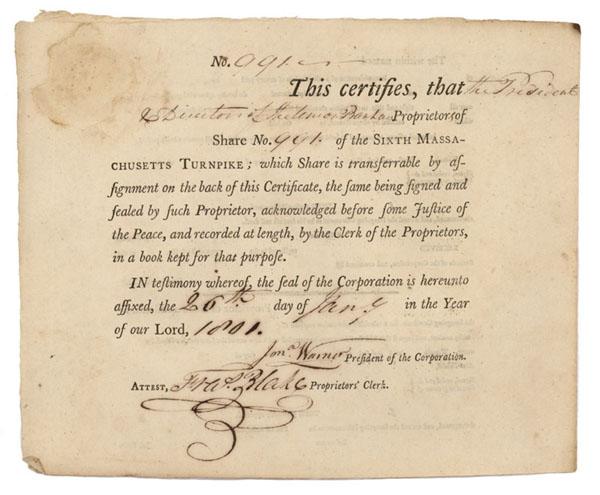 No. 991.
This certifies, that the President
& Directors of the Union Bank are Proprietors of
Share No. 991. of the SIXTH MASSA-
CHUSETTS TURNPIKE; which Share is transferrable by as-
signment on the back of this Certificate, the same being signed and
sealed by such Proprietor, acknowledged before some Justice of
the Peace, and recorded at length, by the Clerk of the Proprietors,
in a book kept for that purpose.
IN testimony whereof, the seal of the Corporation is hereunto
affixed, the 26th day of Jany in the Year
of our Lord, 1801.
Jona Warner President of the Corporation.
ATTEST, Fras. Blake Proprietors' Clerk.